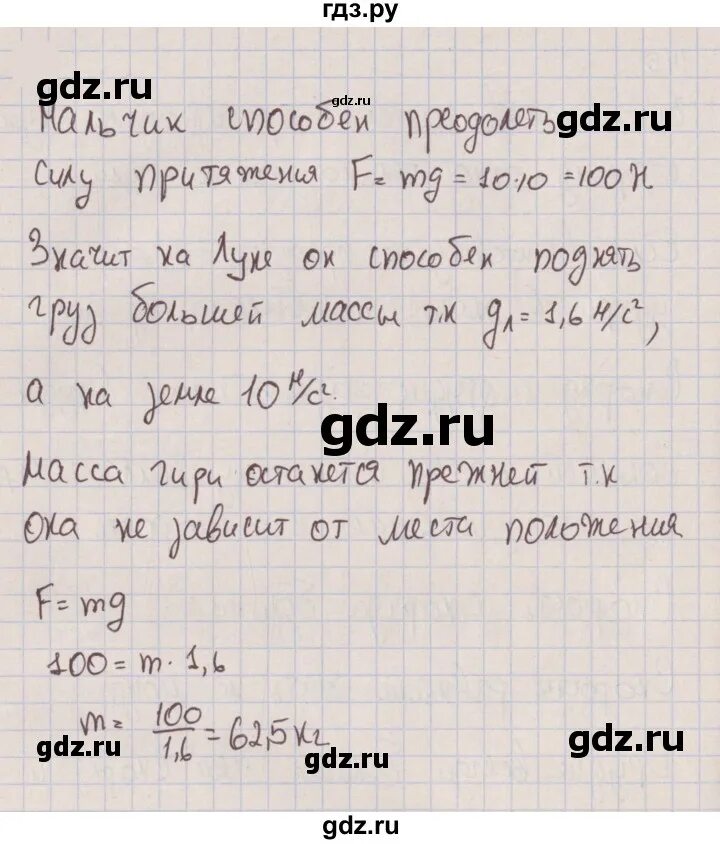 гдз.ру
gdz.ru
gdz.ru
Мальчик способен преодолеть
gdz.ru
силу притяжения F = mg = 10·10 = 100 Н
Значит на Луне он способен поднять
груз большей массы т.к gл = 1,6 м/с²,
а на земле 10 м/с².
gdz.ru
Масса гири останется прежней т.к
она не зависит от места положения
F = mg
100 = m · 1,6
m = 100/1,6 = 62,5 кг
gdz.ru
gdz.ru
gdz.ru
gdz.ru